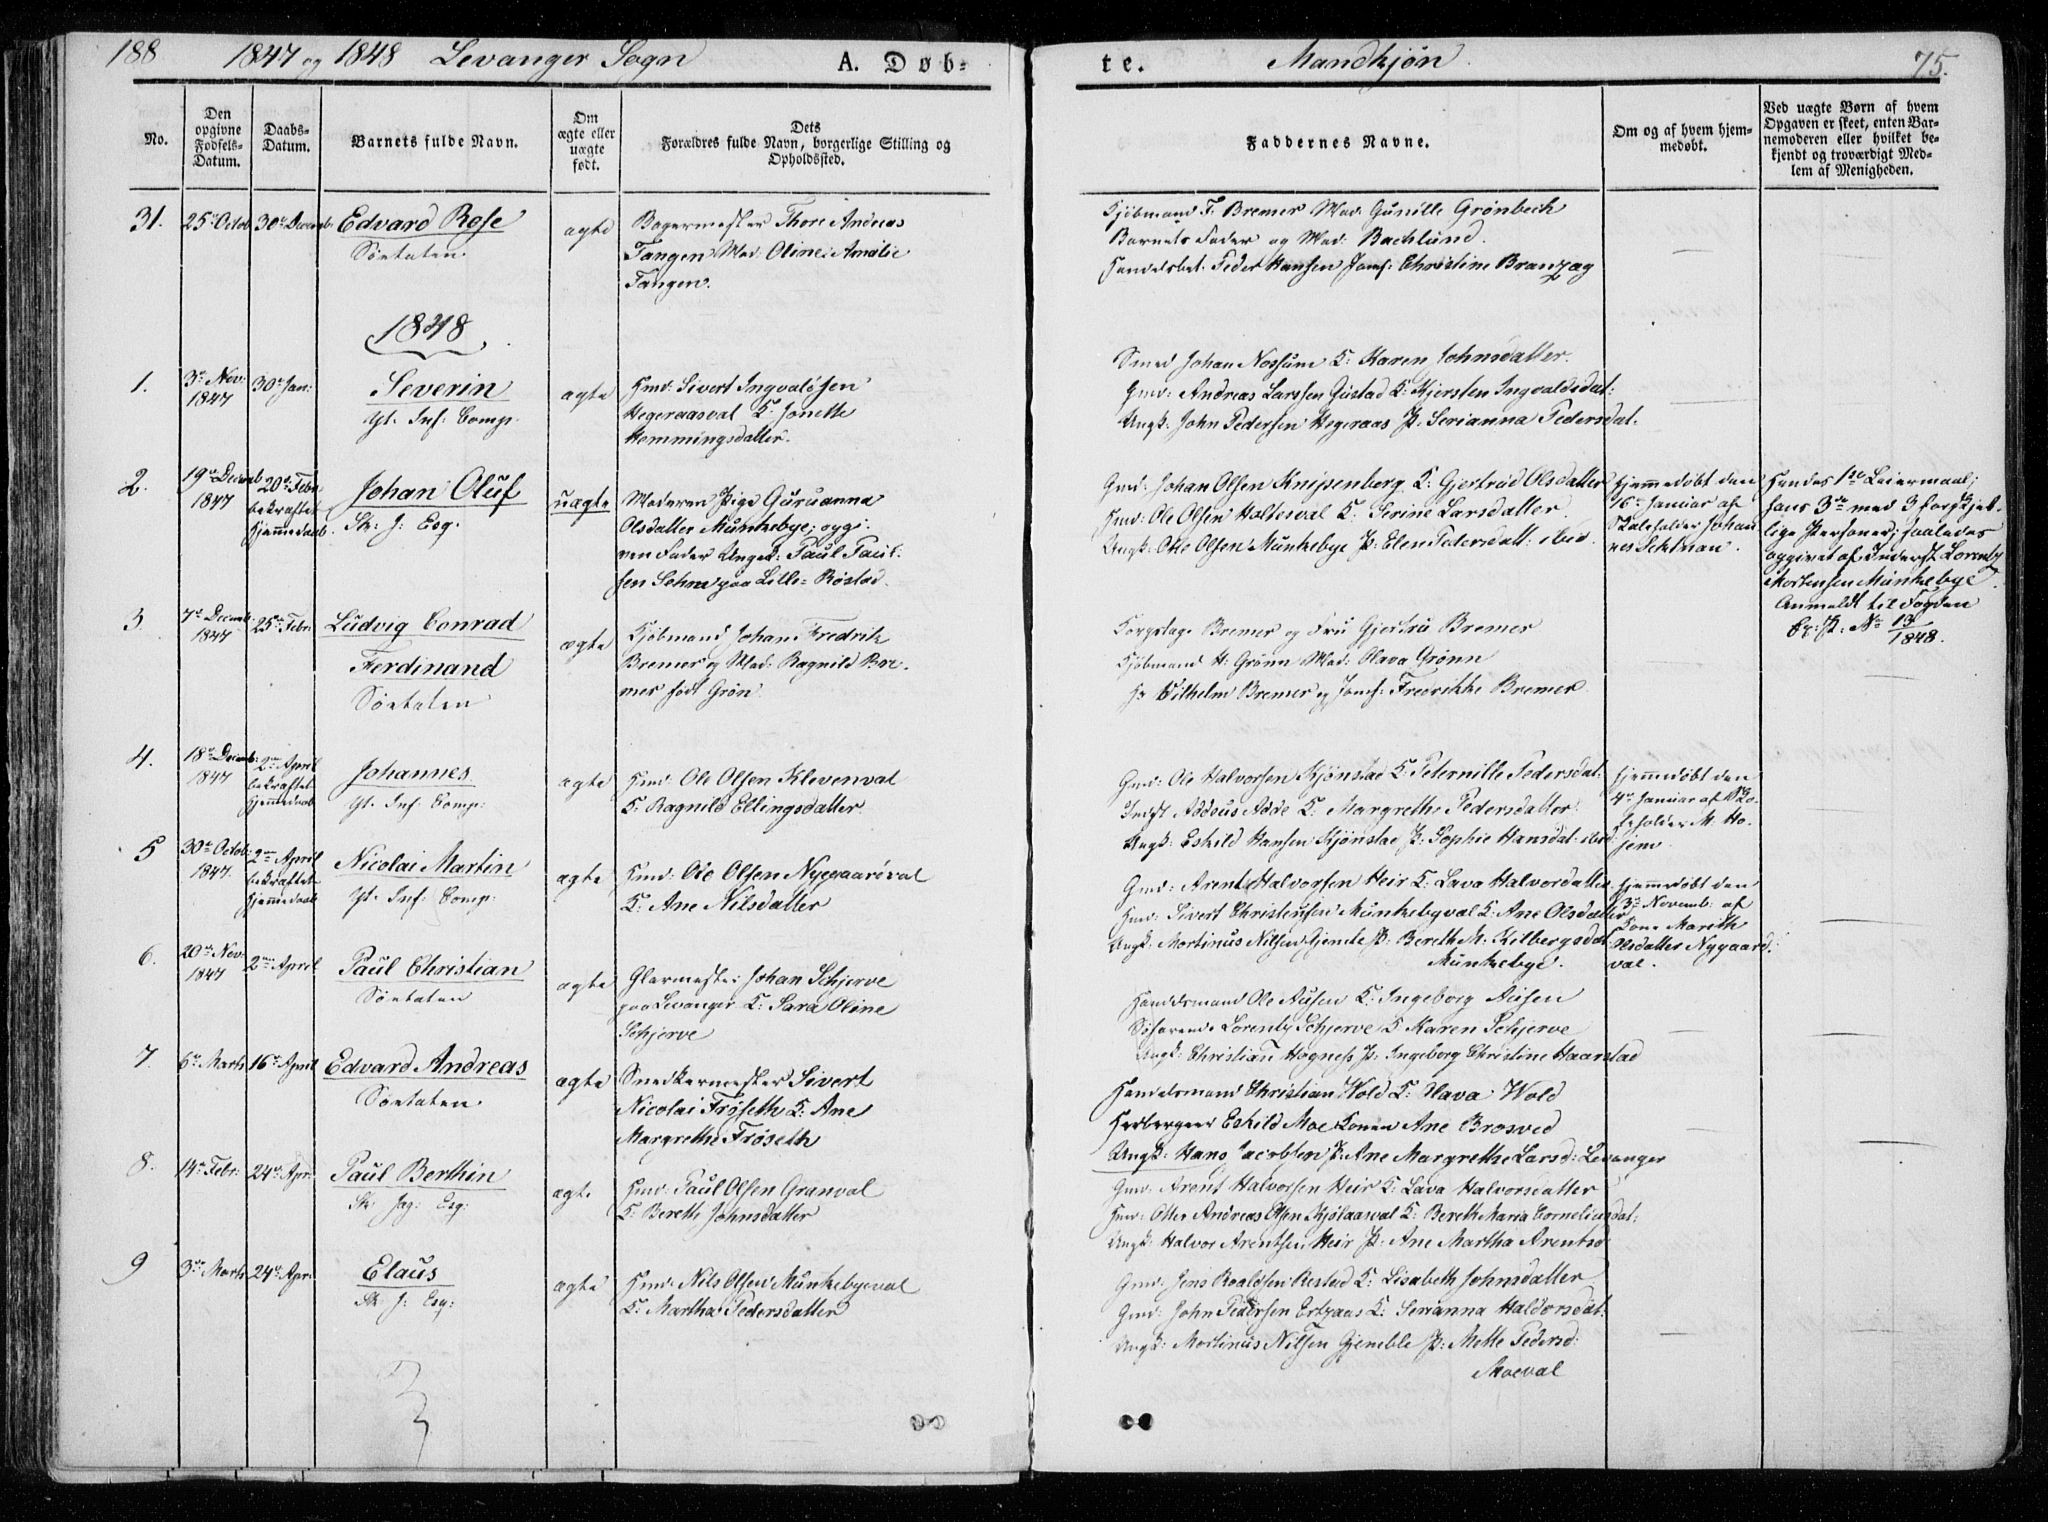 188 1847 og 1848 Levanger Sogn A. Døb-
te. Mandkjøn. 75.
No.
Den opgivne Fødsels-Datum.
Daabs-Datum.
Barnets fulde Navn.
Om ægte eller uægte født.
Dets
Forældres fulde Navn, borgerlige Stilling og
Opholdssted.
Faddernes Navne.
Om og af hvem hjem-
medøbt.
Ved uægte Børn af hvem
Opgaven er skeet, enten Bar-
nemoderen eller hvilket be-
kjendt og troværdigt Med-
lem af Menigheden.
31. 25de Octob 30te Decemb Edvard Rose
Søetaten
ægte
Bagermester Thore Andreas
Tangen Mad: Oline Amalie
Tangen.
Kjøbmand F. Bremer Mad: Gunille Grønbech
Barnets Fader og Mad: Backlund.
Handelsbet. Peder Hansen Jomf: Christine
1848
1. 3de Nov: 1847 30te Jan: Severin
Gt. Inf: Comp.
ægte
Hmd: Sivert Ingvaldsen
Hegeraasval K. Jonette
Hemmingsdatter.
Smed Johan Nossum K: Karen Johnsdatter.
Gmd: Andreas Larssen Gustad K: Kjersten Ingvaldsdat:
Ungk: John Pedersen Hegeraas P: Serianna Pedersdat.
2. 19de Decemb 1847 20de Febr:
bekræftet
Hjemmedaab.
Johan Oluf
Sk: J: Esq.
uægte
Moderen Pige Guruanna
Olsdatter Munkebye; opgi-
ven Fader Ungk: Paul Paul-
sen paa Lille-Røstad.
Gmd: Johan Olsen Knipenberg K: Gjertrud Olsdatter
Hmd: Ole Olsen Holtesval K: Serine Larsdatter
Ungk: Ole Olsen Munkebye P: Elen Pedersdatt: ibid.
Hjemmedøbt den
16de Januar af
Skoleholder Johan-
nes
Hendes 1ste Leiermaal;
hans 3die med 3 forskjel-
lige Personer; saaledes
opgivet af Inderst Lorents
Mortensen Munkebye.
Anmeldt til Fogden
No 13/1848.
3 7de Decemb 1847 25de Febr: Ludvig Conrad
Ferdinand
Søetaten
ægte
Kjøbmand Johan Fredrik
Bremer og Mad: Ragnild Bre-
mer født Grøn.
Bremer og Fru Gjertru Bremer
Kjøbmand H: Grønn Mad: Olava Grønn
Hr Vilhelm Bremer og Jomf: Fredrikke Bremer.
4. 18de Decemb: 1847 2den April
bekræftet
Hjemmedaab
Johannes
Gt. Inf: Comp:
ægte
Hmd: Ole Olsen Klevenval
K: Ragnild Ellingsdatter.
Gmd: Ole Halvorsen Kjønstad K: Peternille Pedersdat:
Indst Addsus Adde K: Margrethe Pedersdatter.
Ungk: Eskild Hansen Kjønstad P: Sophie Hansdat: ibid:
Hjemmedøbt den
4de Januar af Sko-
leholder M. Ho-
jem.
5 30te Octob: 1847. 2den April
bekræftet
Hjemmedaab
Nicolai Martin
Gt. Inf: Comp:
ægte
Hmd: Ole Olsen Nygaardval
K: Ane Nilsdatter
Gmd: Arent Halvorsen Heir K: Lava Halvordatter
Hmd: Sivert Christensen Munkebyval K: Ane Olsdatter
Ungk: Mortinus Nilsen Gjemle P: Bereth M. Kilbergsdat:
Munkebye.
Hjemmedøbt den
3de Novemb: af
Kone Mareth
Olsdatter Nygaard-
val.
6. 20de Nov: 1847 2den April. Paul Christian
Søetaten
ægte
Glarmester Johan Schjerve
paa Levanger K: Sara Oline
Schjerve
Handelsmand Ole Ausen K: Ingeborg Ausen
Søfarende Lorents Schjerve K Karen Schjerve
Ungk: Christian Hogness P: Ingeborg Christine Haarstad
7. 6te Marts 16de April Edvard Andreas
Søetaten.
ægte
Snedkermester Sivert
Nicolai Frøseth K: Ane
Margrethe Frøseth
Handelsmand Christian Wold K: Olava Wold
Eskild Moe Konen Ane Brosved
Ungk: Hans Jacobsen P: Ane Margrethe Larsd: Levanger
8. 14de Febr: 24de Apr: Paul Berthin
Sk: Jag: Esq:
ægte
Hmd: Paul Olsen Granval
K: Bereth Johnsdatter
Gmd: Arent Halvorsen Heir K: Lava Halvorsdatter
Hmd: Otter Andreas Olsen Kjølaasval K: Bereth Maria Corneliusdat:
Ungk: Halvor Arentsen Heir P: Ane Martha Arentsd
9 3die Marts 24de Apr: Elaus
Sk: J: Esq:
ægte
Hmd: Nils Olsen Munkebyeval
K: Martha Pedersdatter
Gmd: Jens Roaldsen Restad K: Lisabeth Johnsdatter
Gmd: John Pedersen K: Serianna Haldorsdat:
Ungk: Mortinus Nilsen Gjemble P: Mette Pedersd:
Moeval